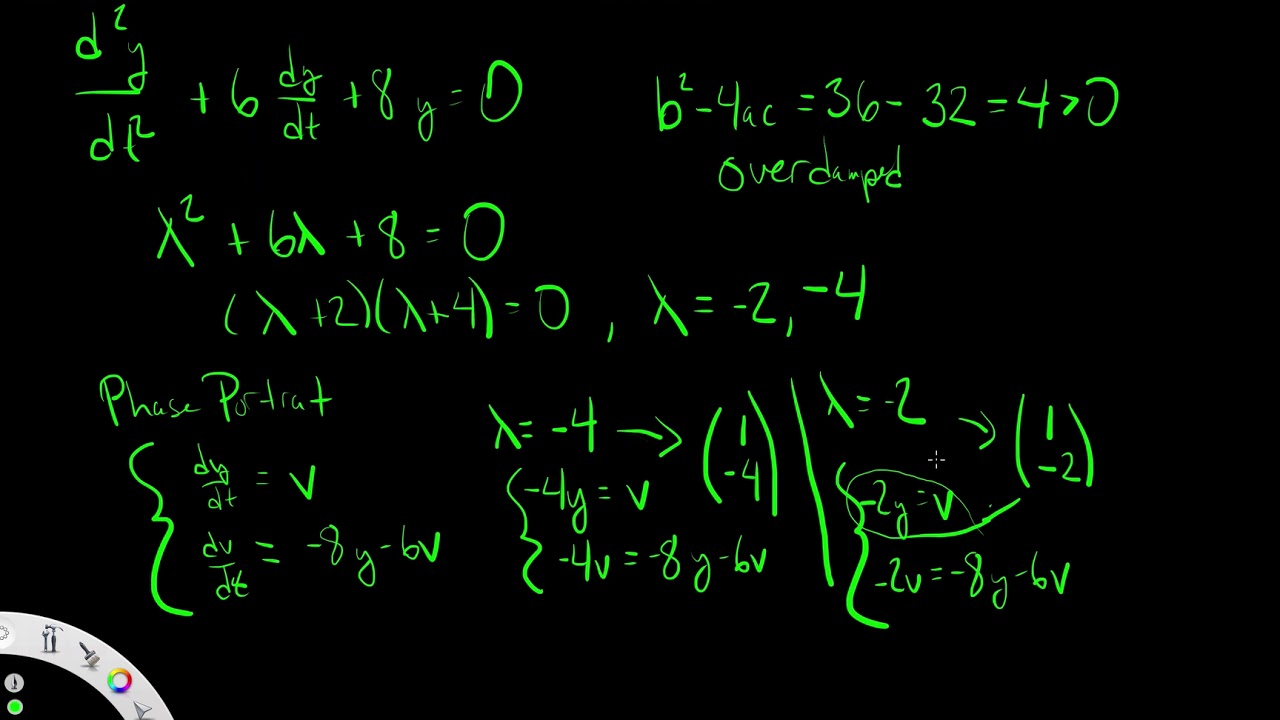 d²y/dt² + 6 dy/dt + 8y = 0
b² - 4ac = 36 - 32 = 4 > 0
overdamped
λ² + 6λ + 8 = 0
(λ + 2)(λ + 4) = 0 , λ = -2, -4
Phase Portrat
{ dy/dt = v
dv/dt = -8y - 6v
λ = -4 → (1 -4)
{ -4y = v
-4v = -8y - 6v
λ = -2 → (1 -2)
{ -2y = v
-2v = -8y - 6v